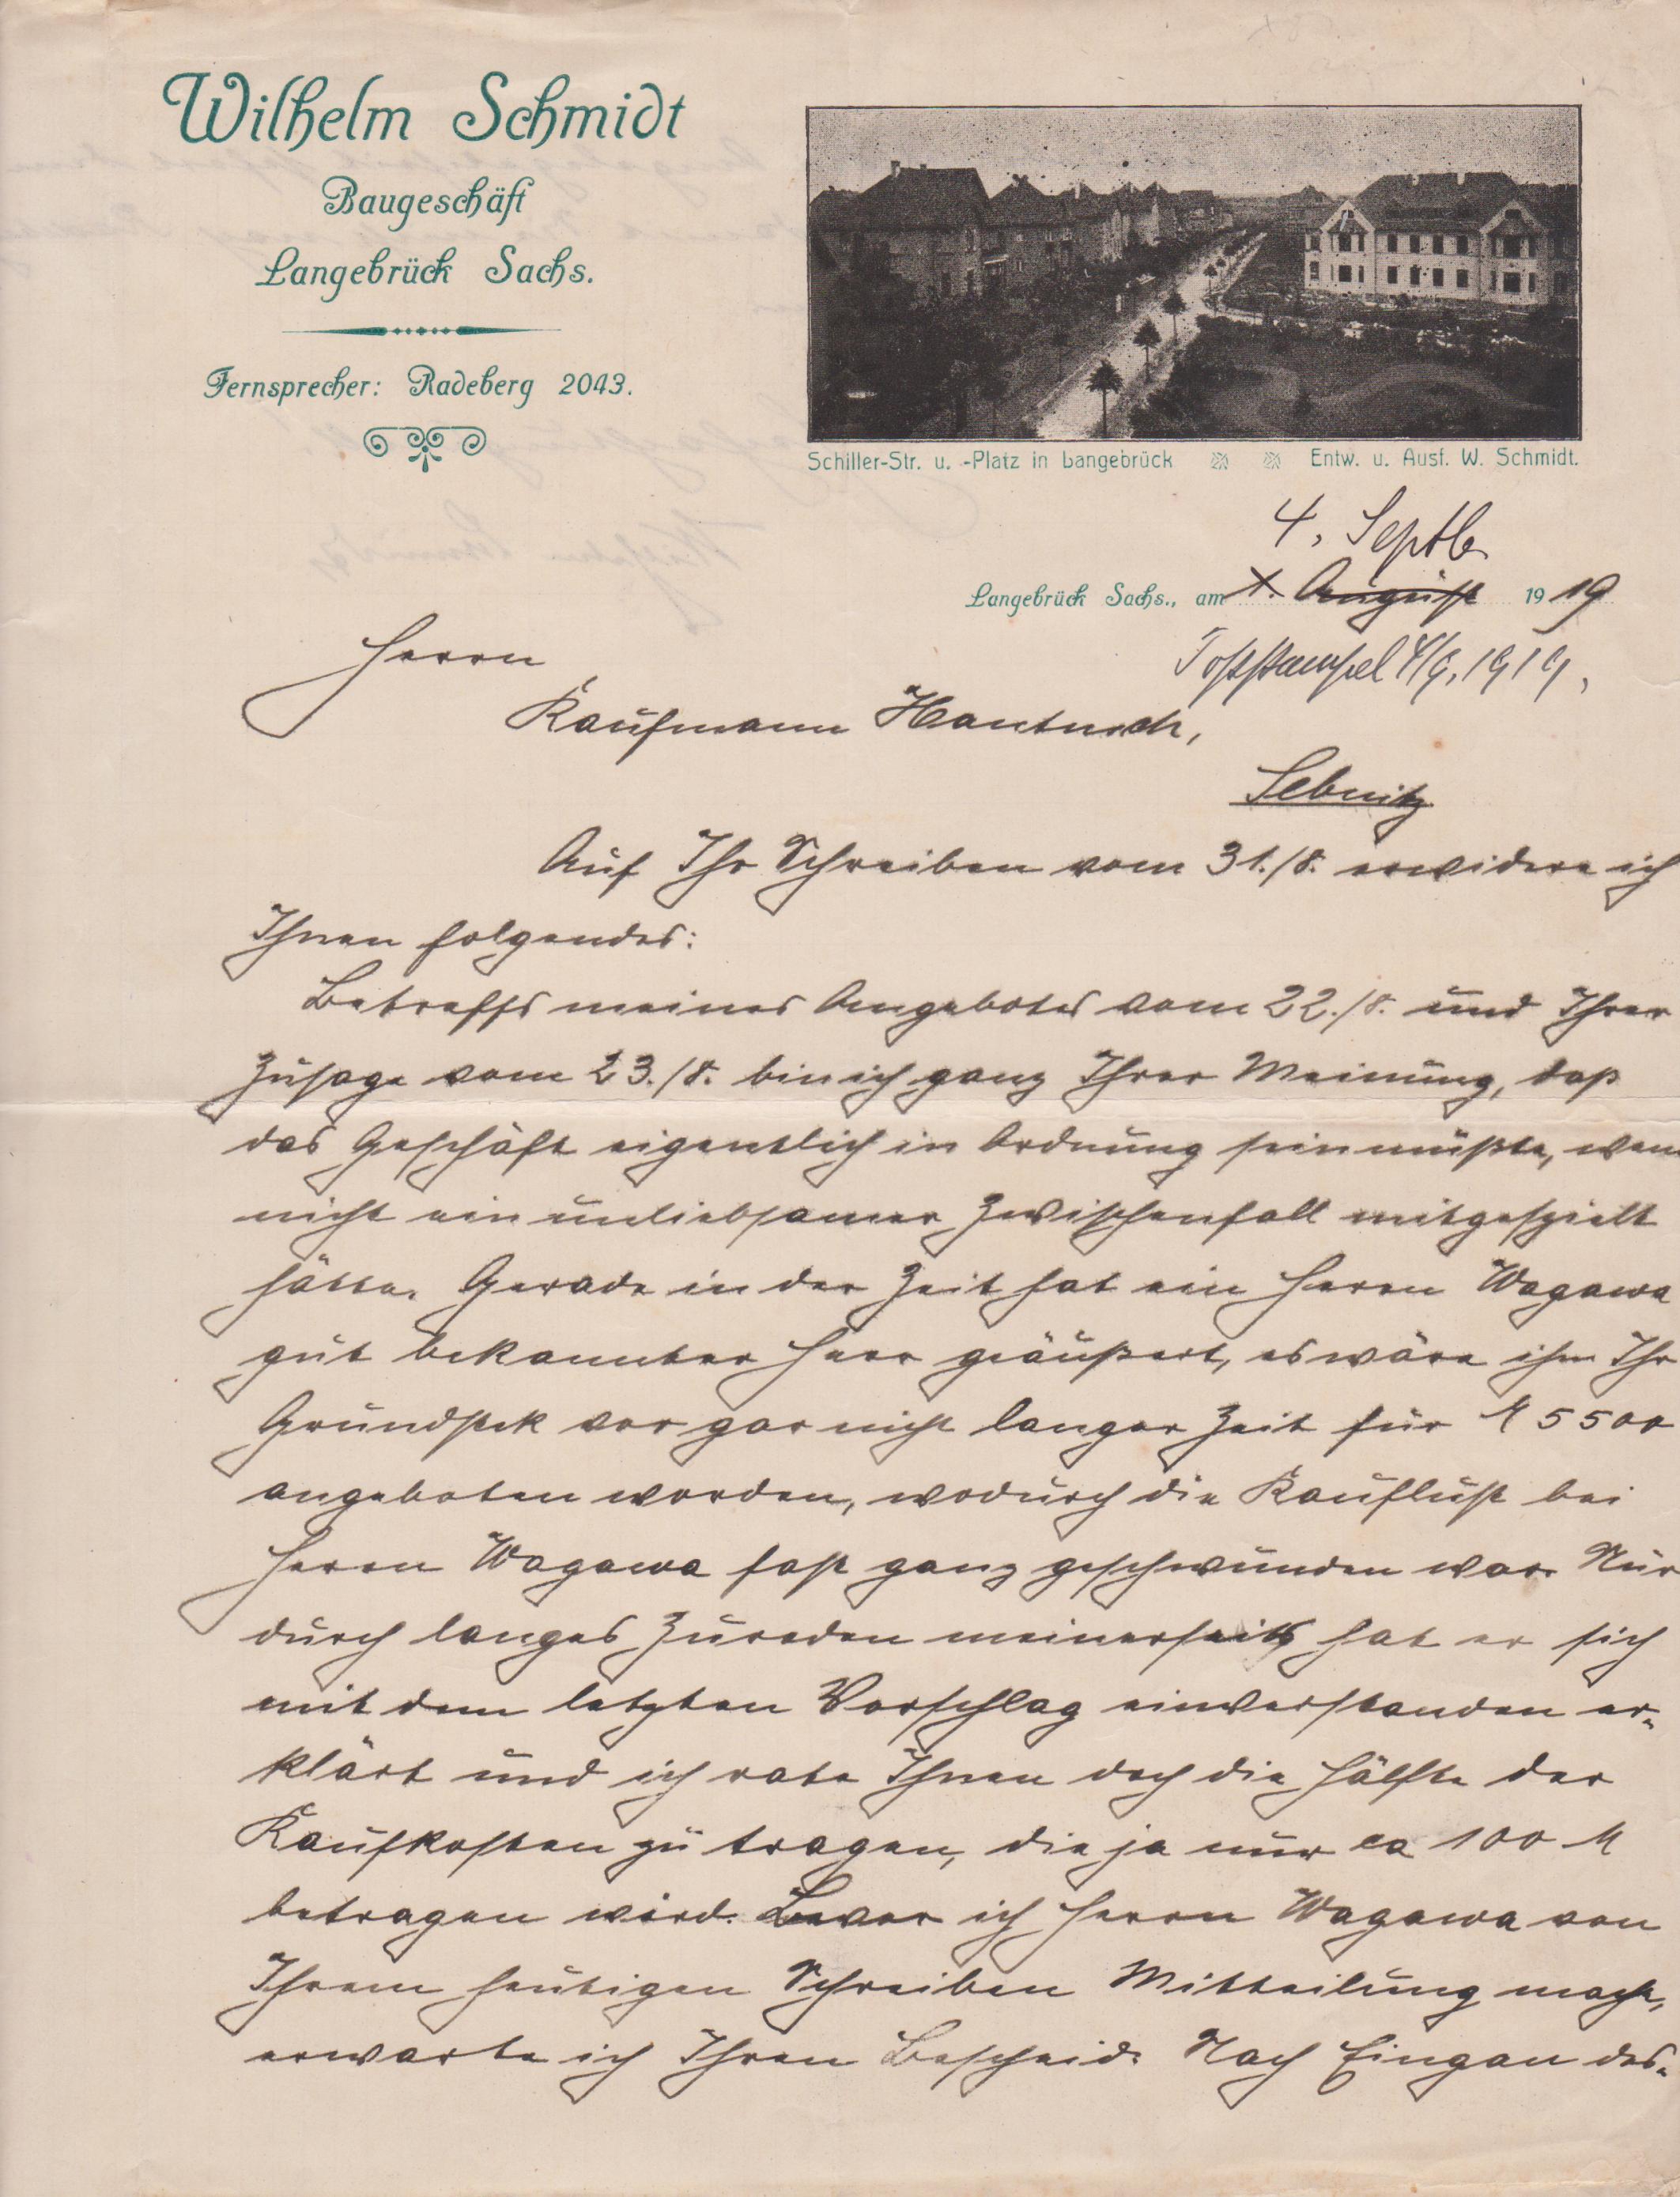 Wilhelm Schmidt
Baugeschäft
Langebrück Sachs.
Fernsprecher: Radeberg 2043.
Schiller-Str. u. -Platz in Langebrück Entw. u. Ausf. W. Schmidt.
4. Septb.
Langebrück Sachs., am 1. August 1919
Poststempel 4/9. 1919.
Herrn
Kaufmann Hantusch,
Sebnitz
Auf Ihr Schreiben vom 31./8. erwidere ich
Ihnen folgendes:
Betreffs meines Angebotes vom 22./8. und Ihrer
Zusage vom 23./8. bin ich ganz Ihrer Meinung, daß
das Geschäft eigentlich in Ordnung sein müßte, wenn
nicht ein unliebsamer Zwischenfall mitgespielt
hätte. Gerade in der Zeit hat ein Herrn Wagawa
gut bekannter Herr geäußert, es wäre ihm Ihr
Grundstck vor gar nicht langer Zeit für M 5500
angeboten worden, wodurch die Kauflust bei
Herrn Wagawa fast ganz geschwunden war. Nur
durch langes Zureden meinerseits hat er sich
mit dem letzten Vorschlag einverstanden er-
klärt und ich rate Ihnen doch die Hälfte der
Kaufkosten zu tragen, die ja nur ca 100 M
betragen wird. Bevor ich Herrn Wagawa von
Ihrem heutigen Schreiben Mitteilung mache,
erwarte ich Ihren Bescheid. Nach Eingan des-